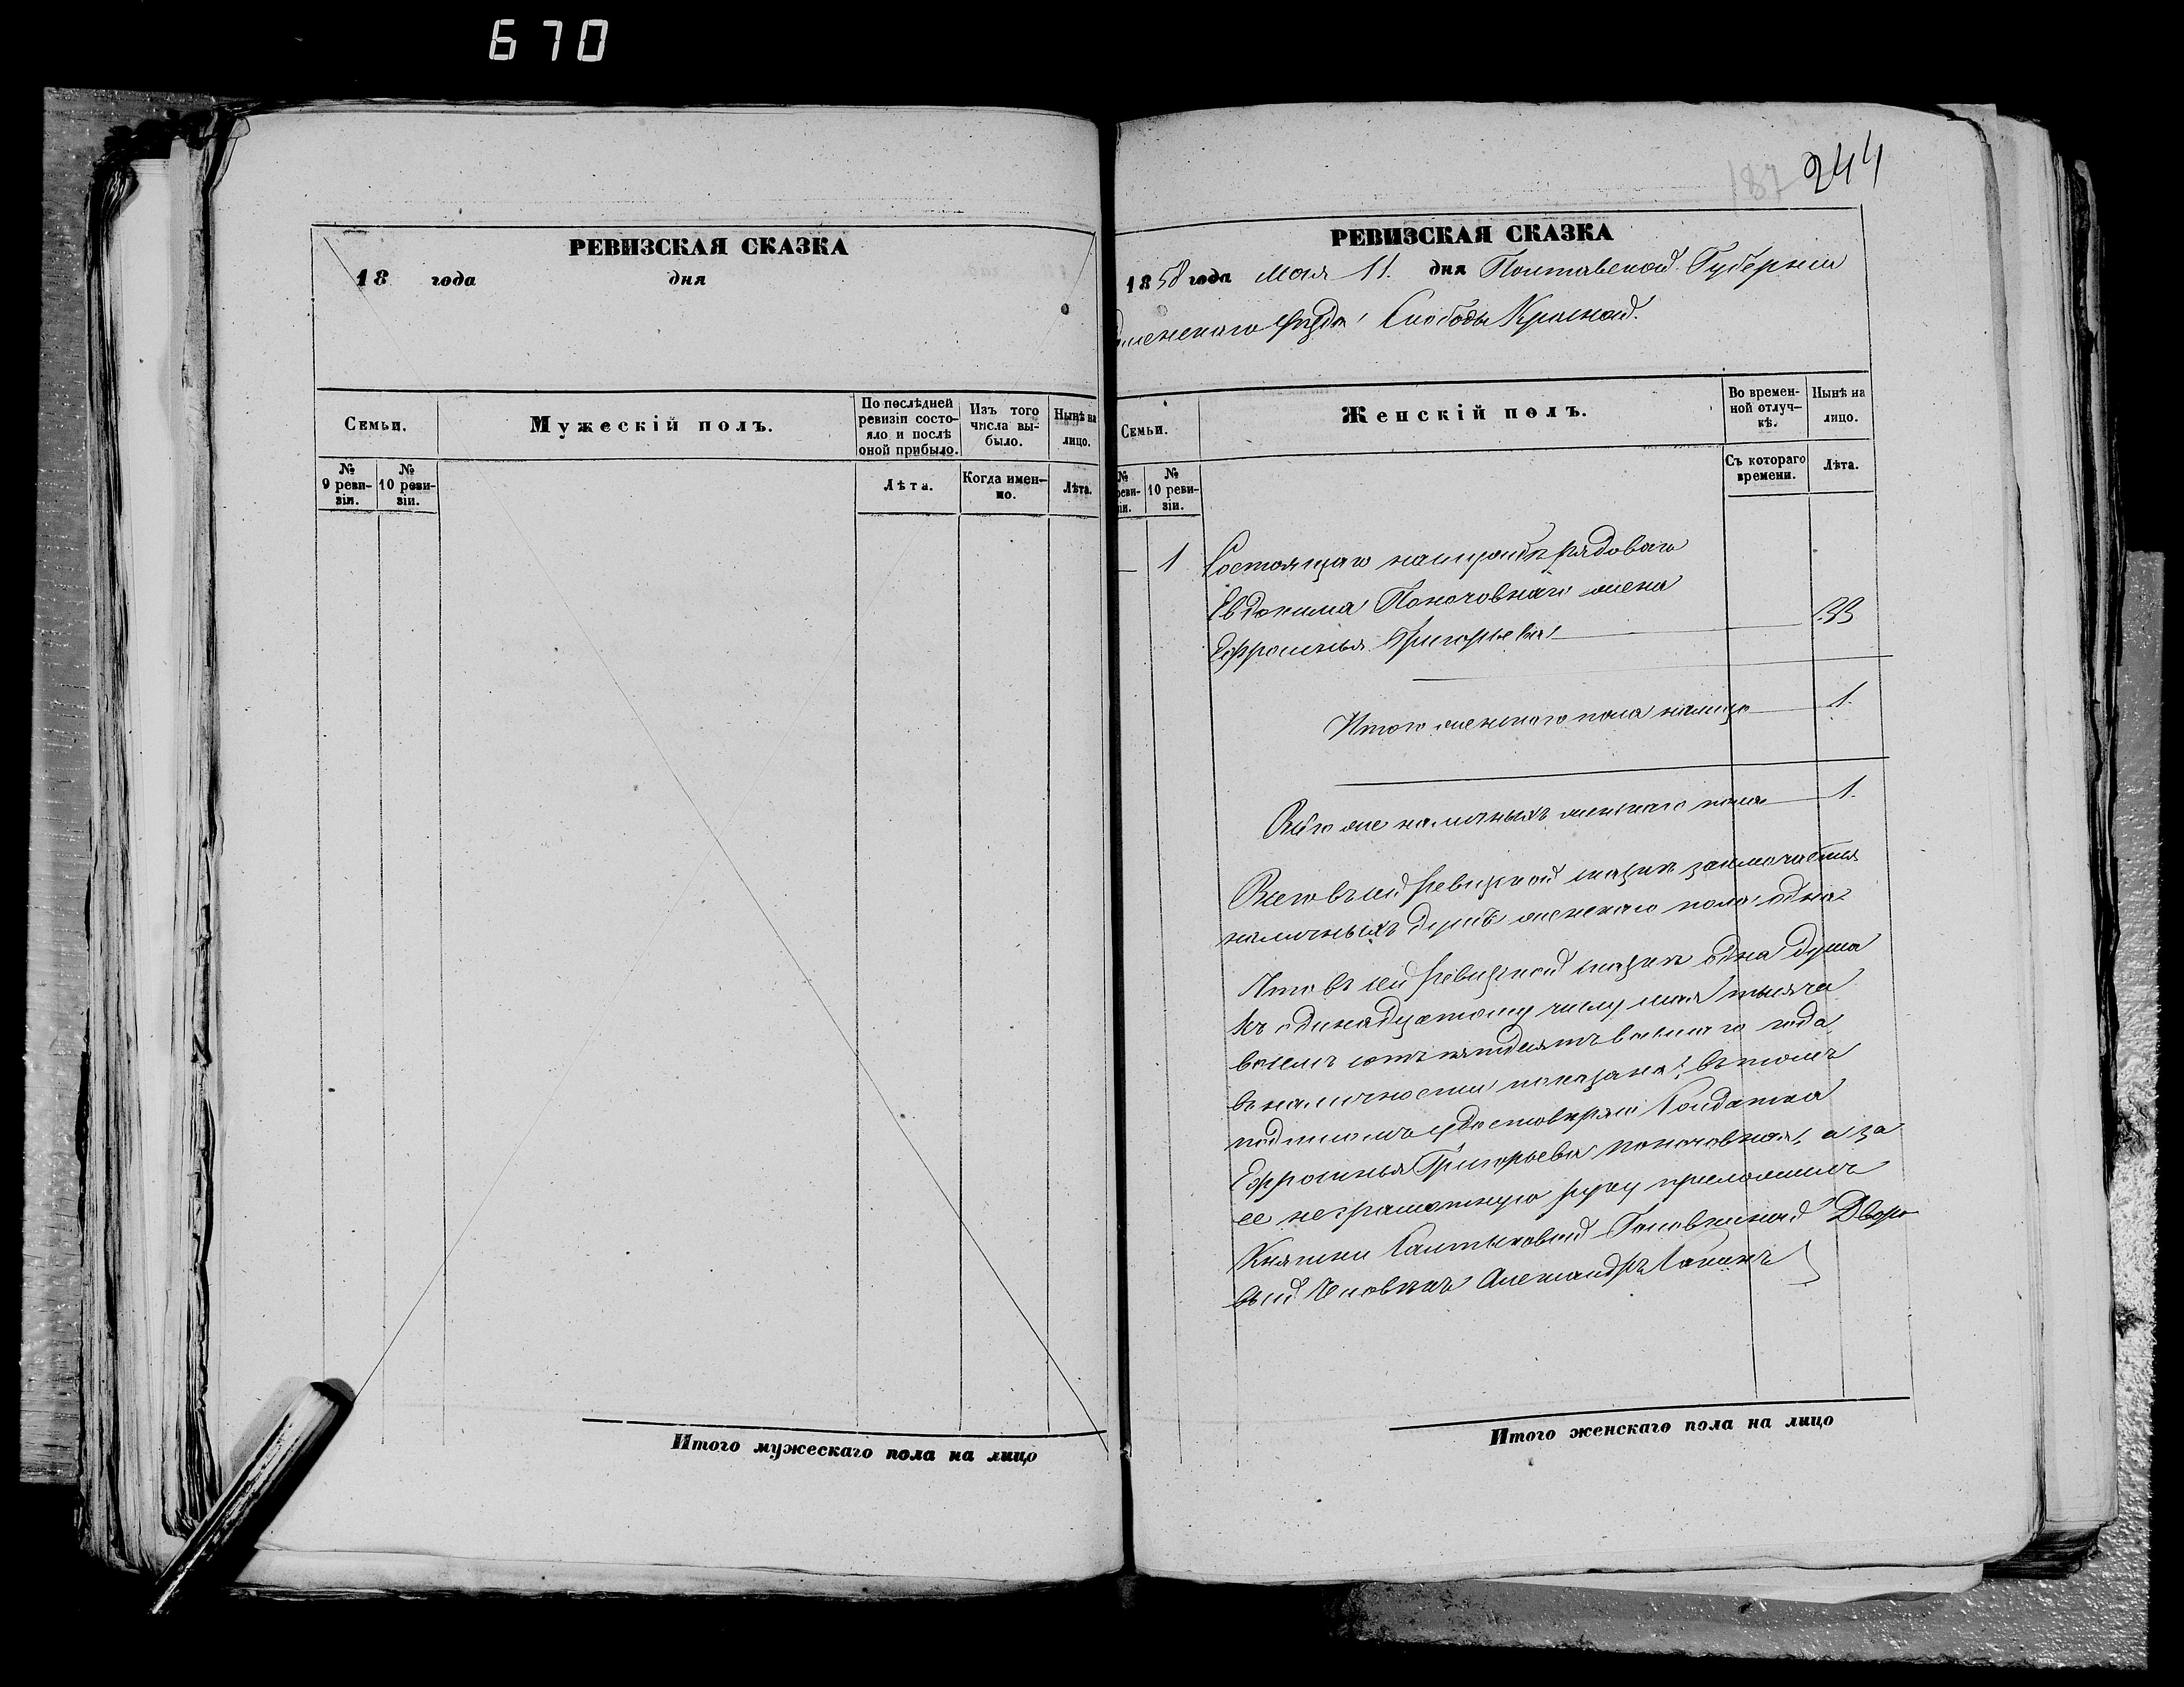 670
РЕВИЗСКАЯ СКАЗКА
18 года дня
Семьи.
Мужескій полъ.
По послѣдней ревизіи состояло и послѣ оной прибыло.
Изъ того числа выбыло.
Нынѣ на лицо.
№ 9 ревизіи.
№ 10 ревизіи.
Лѣта.
Когда именно.
Лѣта.
Итого мужескаго пола на лицо
187 244
РЕВИЗСКАЯ СКАЗКА
1858 года мая 11. дня Полтавской Губерніи
менскаго уѣзда Слободы Красной.
Семьи.
Женскій полъ.
Во временной отлучкѣ.
Нынѣ на лицо.
№ реви-зіи.
№ 10 ревизіи.
Съ котораго времени.
Лѣта.
1 Состоящаго рядоваго
Евдокима Поночовнаго жена
Ефросинья Григорьева 33
Итого женскаго пола налицо 1.
Всего же наличныхъ женскаго пола 1.
Всего въ сей ревизской сказкѣ заключается
наличныхъ душъ женскаго пола одна
Что въ сей ревизской сказкѣ одна душа
къ одинадцатому числу мая тысяча
восемь сотъ пятдесятъ восмаго года
въ наличности показана; въ томъ
подписомъ удостовѣряю Солдатка
Ефросинья Григорьева Поночовная, а за
ее неграмотную руку приложилъ
Княгини Салтыковой Головкиной Дворо
вый Человѣкъ Александръ
Итого женскаго пола на лицо